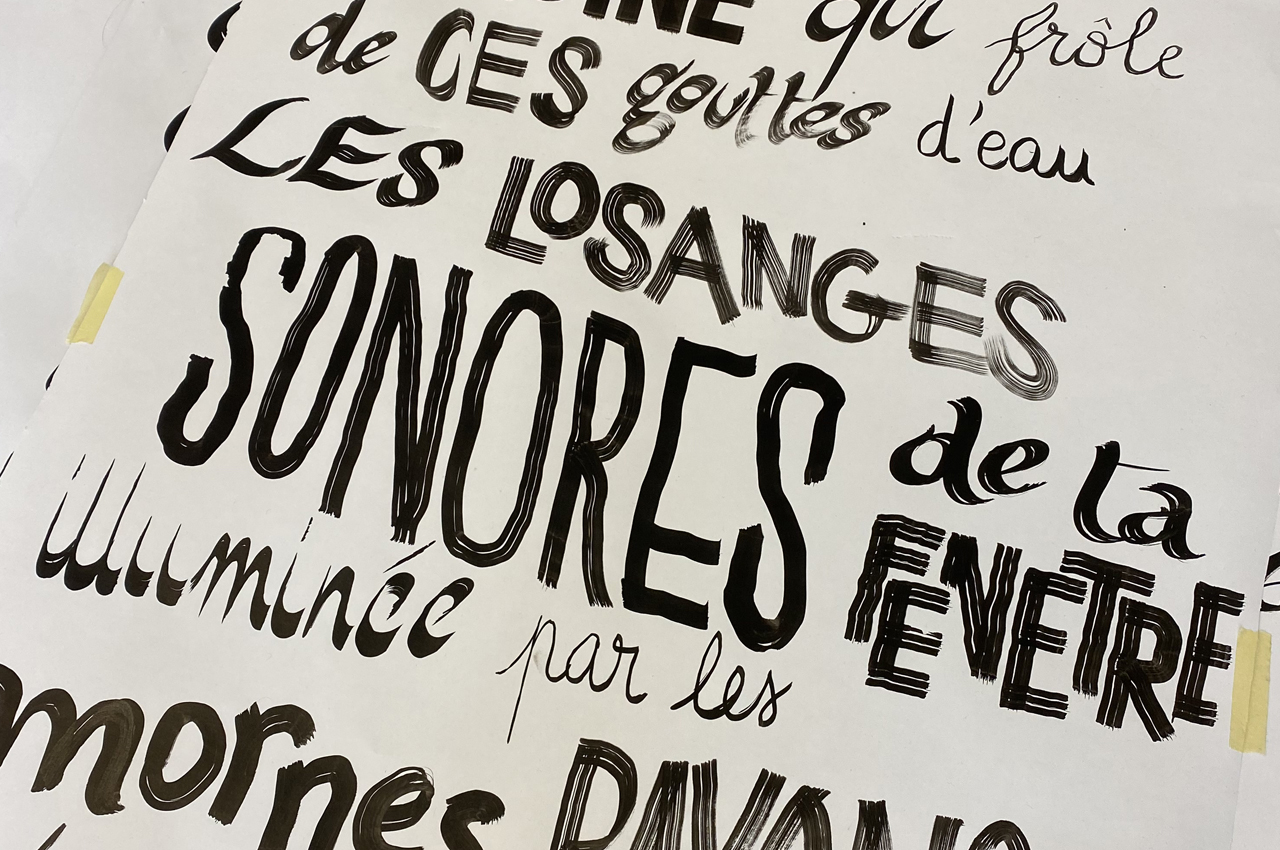 qui frôle
de CES gouttes d'eau
LES LOSANGES
SONORES de ta
FENETRE
illuminée par les
mornes